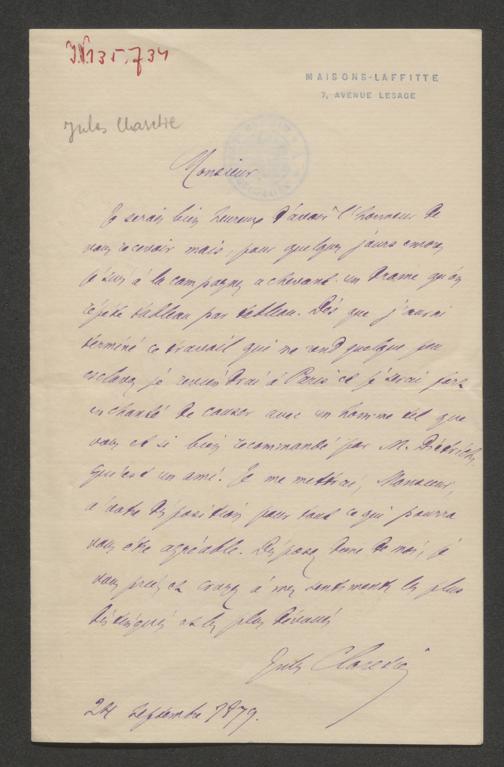 I.N.135.734
MAISONS-LAFFITTE
7, AVENUE LESAGE
Jules Claretie
Monsieur
Je serais bien heureux d'avoir l'honneur de
vous recevoir mais, pour quelques jours encore,
je suis à la campagne, achevant un drame qu'on
répète tableau par tableau. Dès que j'aurai
terminé ce travail qui me rend quelque peu
esclave, je reviendrai à Paris et je serai fort
enchanté de causer avec un homme tel que
vous et si bien recommandé par M. Diétrich,
qui est un ami. Je me mettrai, Monsieur,
à votre disposition pour tout ce qui pourra
vous être agréable. Disposez donc de moi, je
vous prie, et croyez à mes sentiments les plus
distingués et les plus dévoués
Jules Claretie
24 septembre 1879.